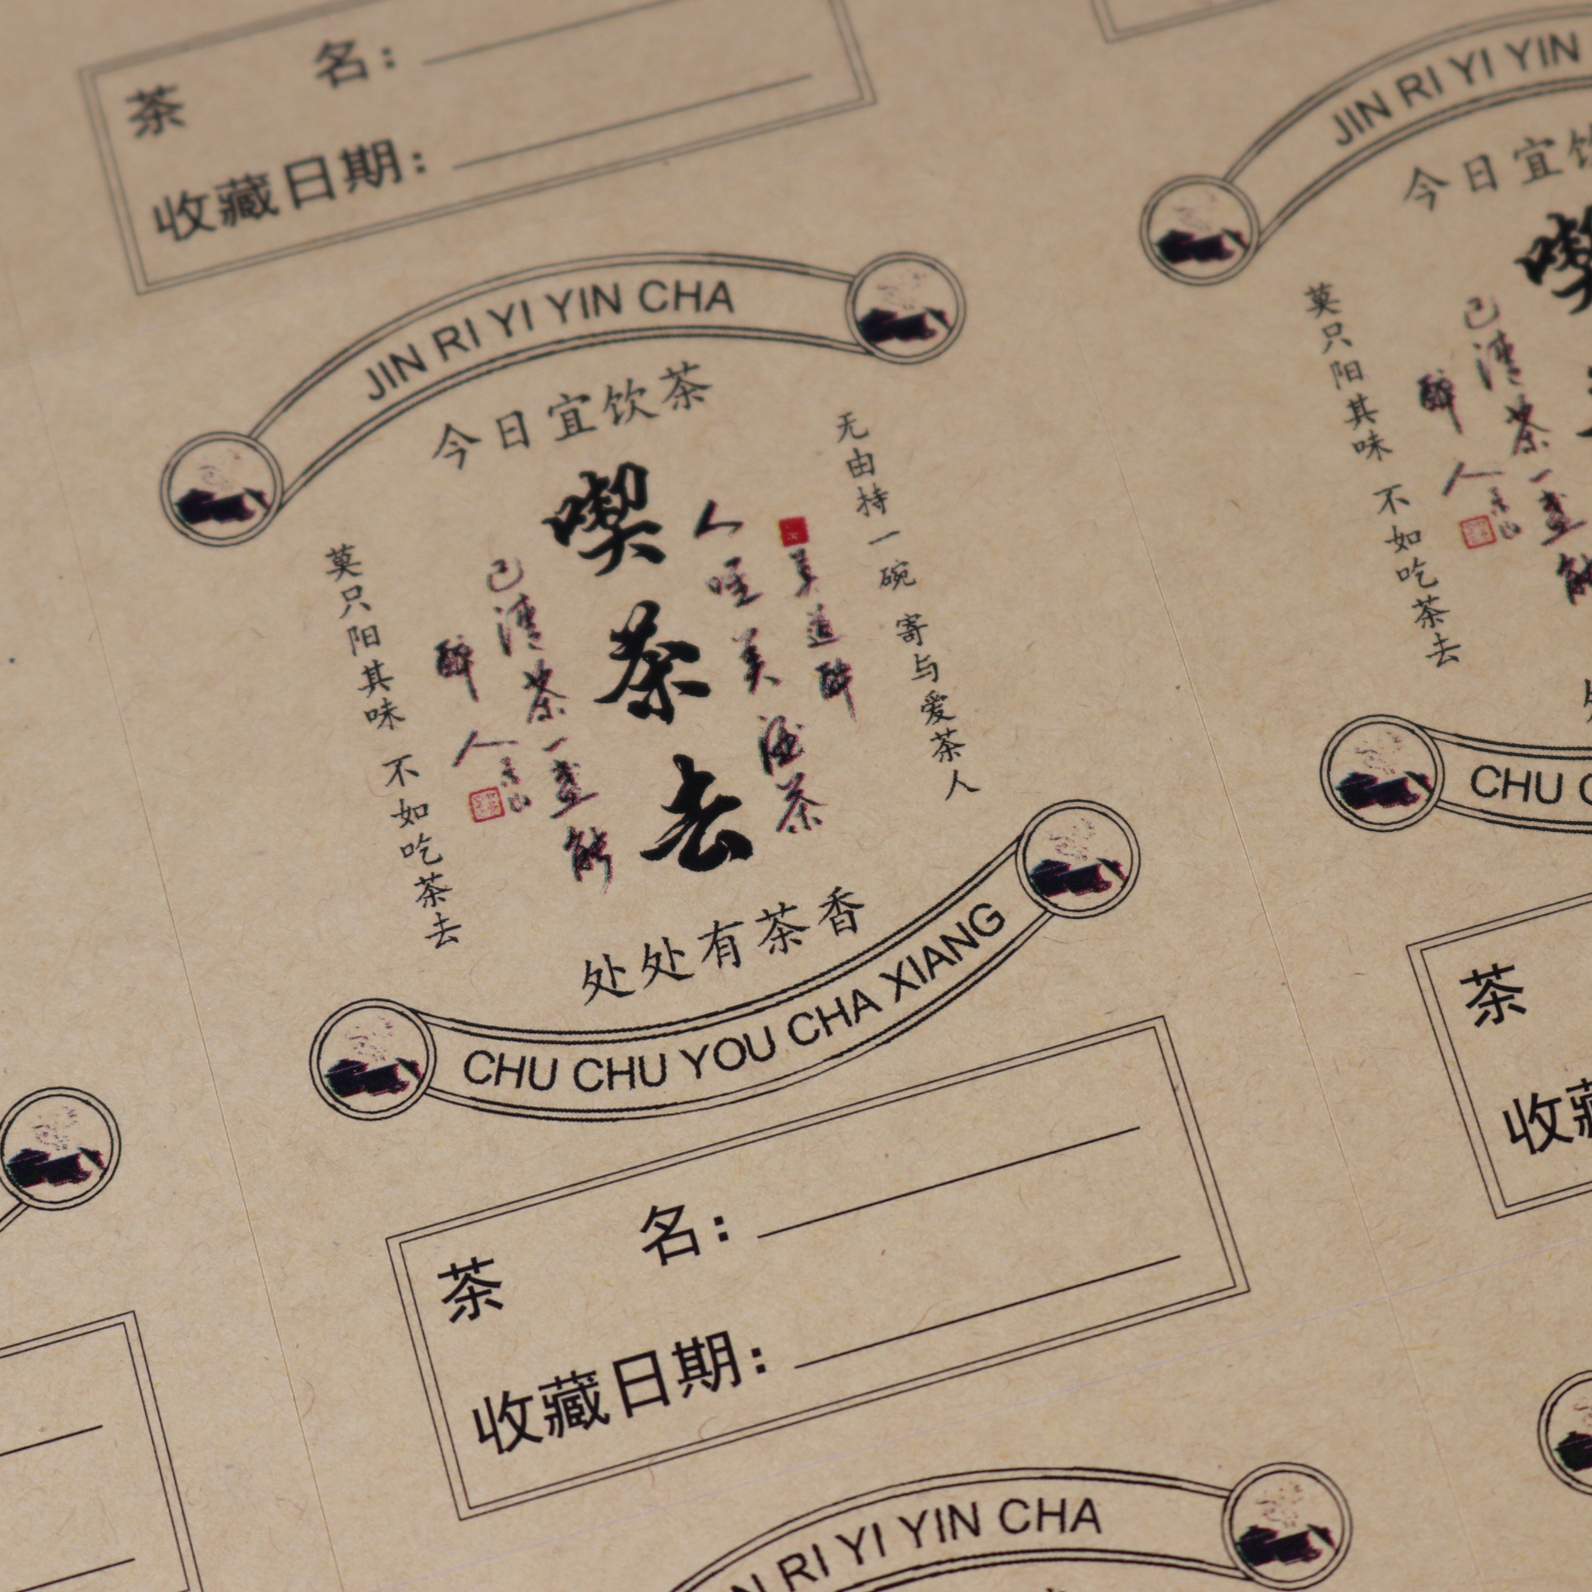 茶 名：
收藏日期：
JIN RI YI YIN CHA
今日宜饮茶
无由持一碗 寄与爱茶人
喫茶去
莫只阳其味 不如吃茶去
美道醉
人唯美酒茶
已清茶一壶能
醉人
处处有茶香
CHU CHU YOU CHA XIANG
茶 名：
收藏日期：
JIN RI YI YIN
今日宜饮
喫
莫只阳其味 不如吃茶去
已清茶一壶能
醉人
CHU
茶
收藏
RI YI YIN CHA